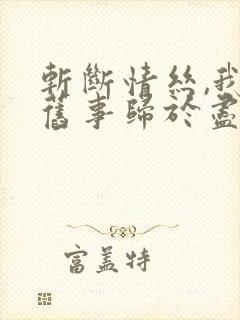 斬斷情絲,我
舊事歸於盡
富蓋特